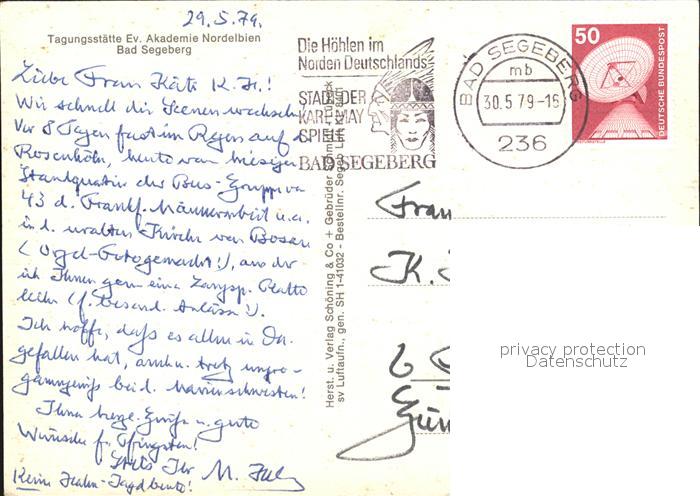 29.5.79.
Tagungsstätte Ev. Akademie Nordelbien
Bad Segeberg
Liebe Frau Käte K. H.!
Wie schnell die Scenen wechseln
Vor 8 Tagen fast im Regen auf
Rosenhöh, heute vom hiesigen
Standquartier der Bus-Gruppe von
43 d. Frankf. Männerarbeit u.a.
in d. uralten Kirche von Bosau
(Orgel-Foto gemacht!), aus der
ich Ihnen gern eine Platte
(f. besond. Anlässe!).
Ich hoffe, daß es allen in Da.
gefallen hat, auch u. trotz
bei d. Marienschwestern!
Ihnen herzl. Grüße u. gute
Wünsche fr. Pfingsten!
Stets Ihr M.
Keine Hahn-Jagd heute!
Die Höhlen im
Norden Deutschlands
STADT DER
KARL MAY
SPIELE
BAD SEGEBERG
BAD SEGEBERG
mb
30.5.79-16
236
50
DEUTSCHE BUNDESPOST
Herst. u. Verlag Schöning & Co + Gebrüder Schmidt, Lübeck
sv Luftaufn., gen. SH 1-41032 - Bestellnr. Segeb
Frau
K.
6
privacy protection
Datenschutz